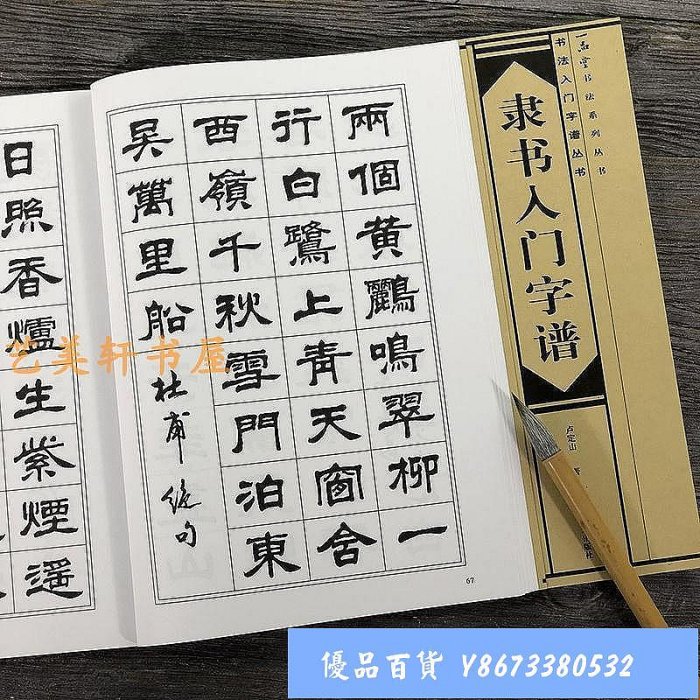 书法系列丛书
书法入门字谱丛书
隶书入门字谱
卢定山
兩個黃鸝鳴翠柳一
行白鷺上青天窗含
西嶺千秋雪門泊東
吳萬里船
杜甫絕句
67
日照香爐生紫煙遙
艺美轩书屋
優品百貨 Y8673380532